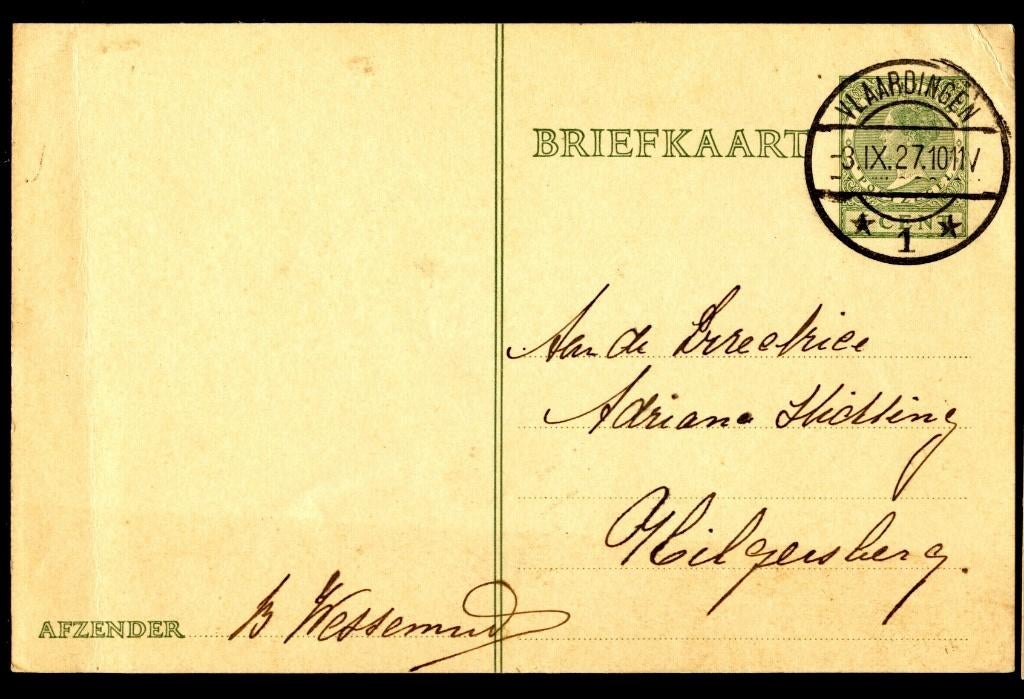 BRIEFKAART
VLAARDINGEN
3.IX.27.10-11V
1
POSTZEGEL
CENT
Aan de Directrice
Adriana Stichting
Hilgersberg.
AFZENDER B